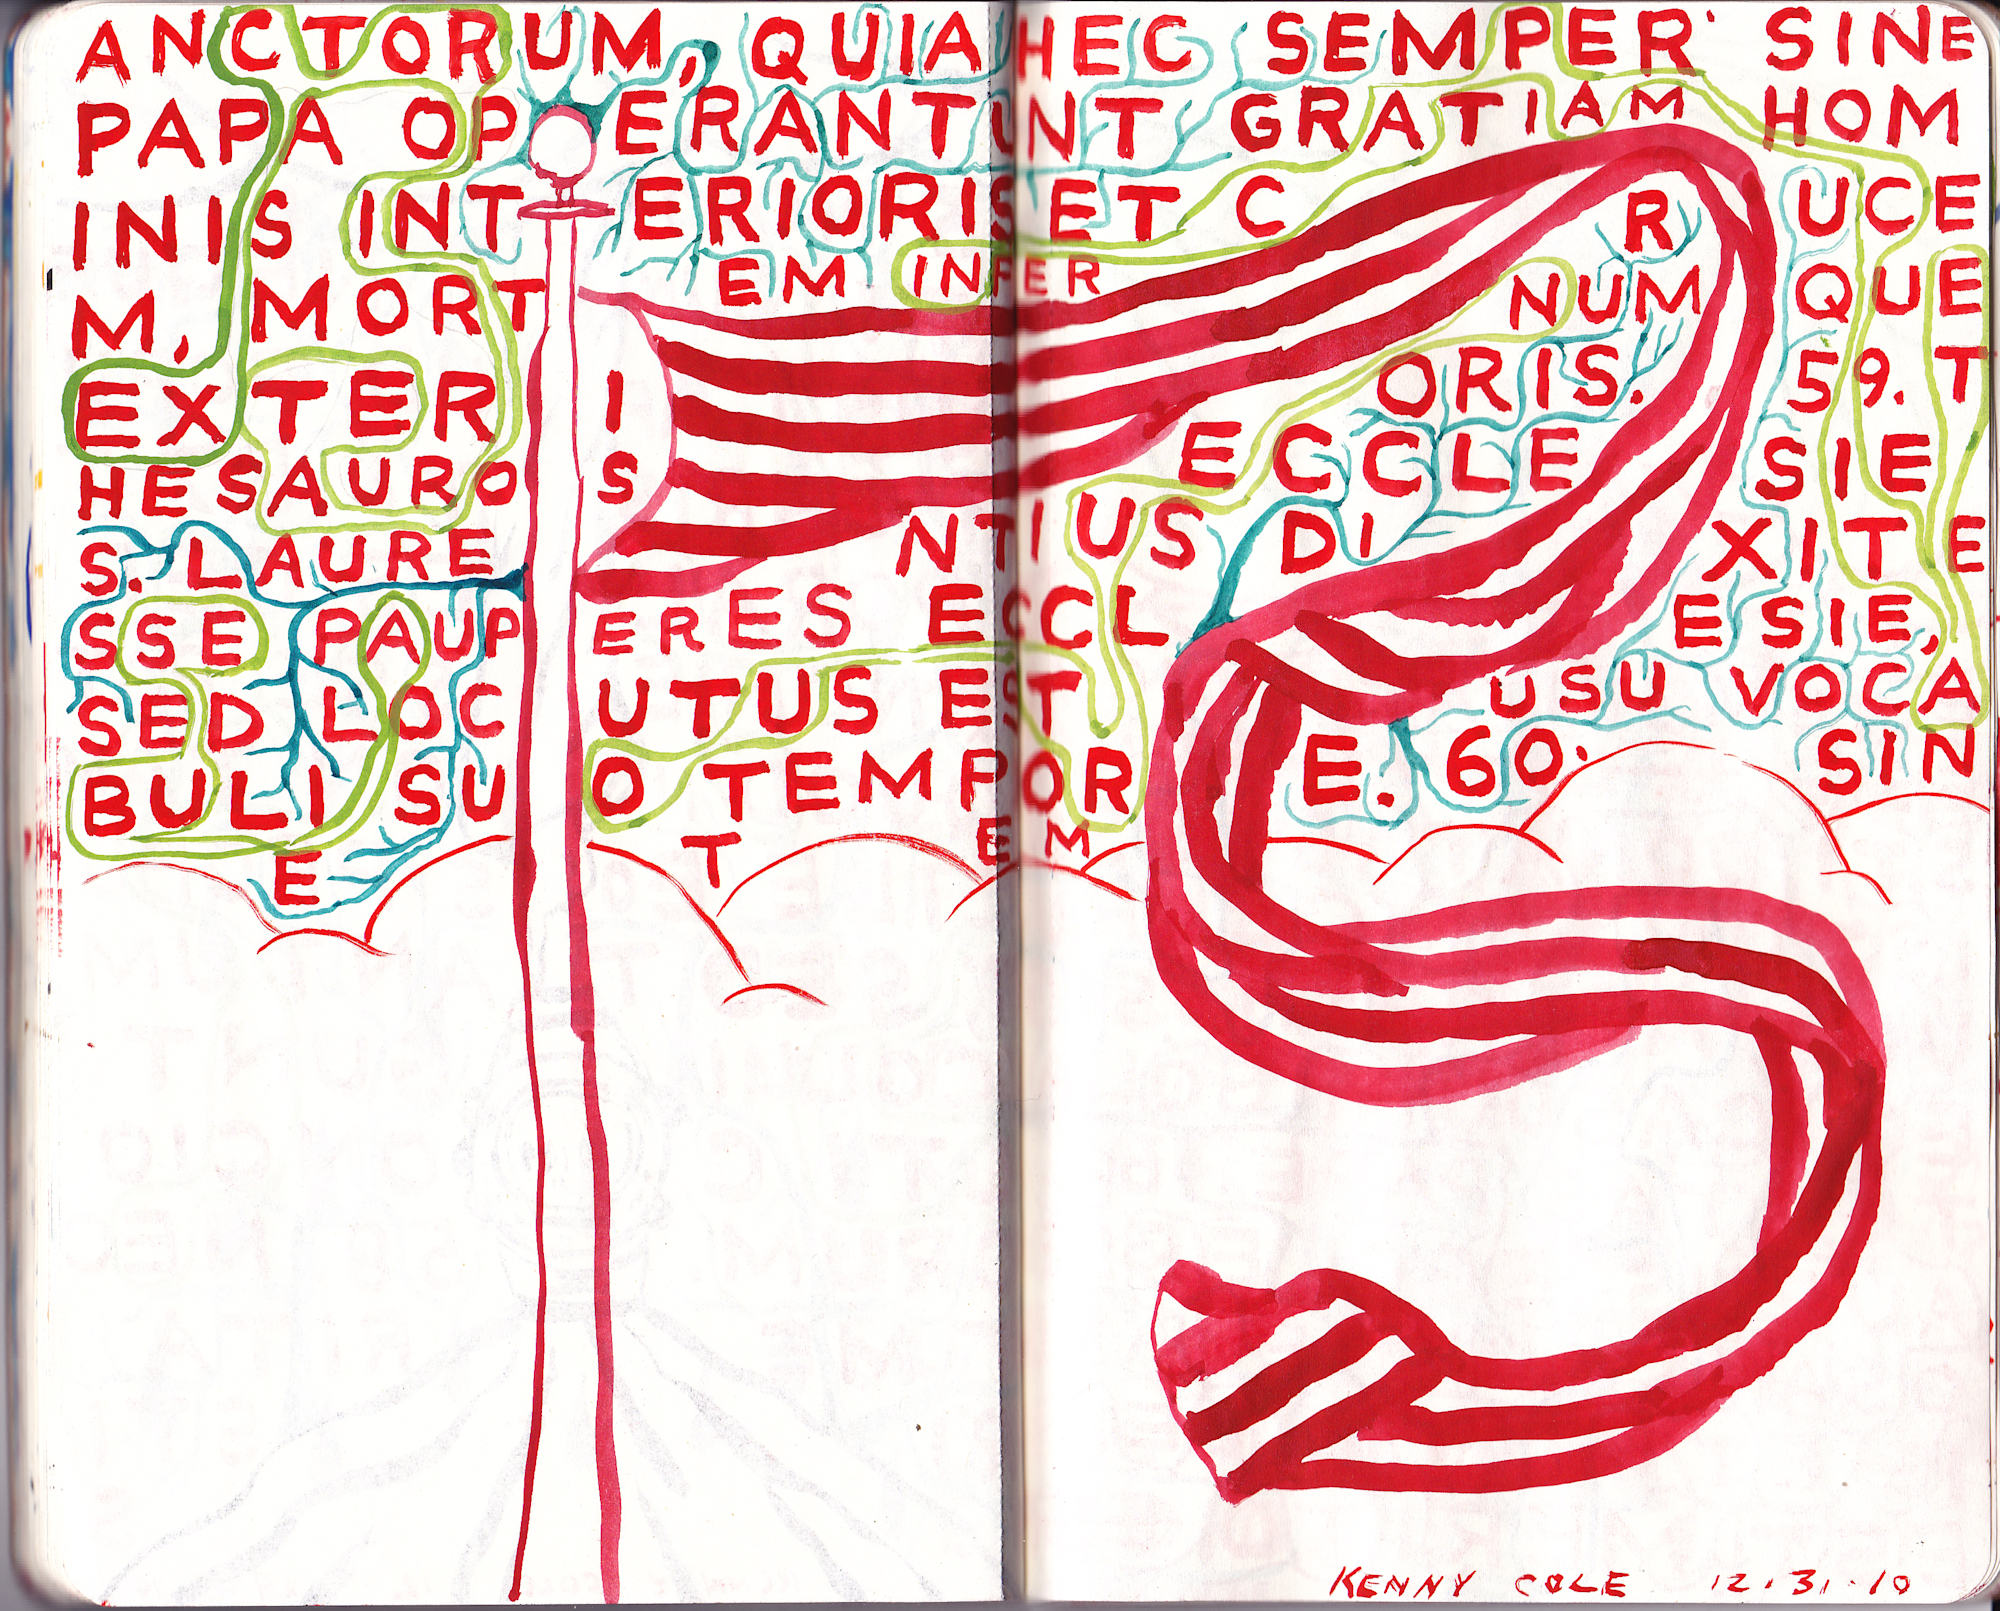 ANCTORUM, QUIA HEC SEMPER SINE
PAPA OPERANTUNT GRATIAM HOM
INIS INTERIORIS ET C R UCE
M, MORT EM INFER NUM QUE
EXTER I ORIS. 59. T
HESAURO S ECCLE SIE
S. LAURE NTIUS DI XIT E
SSE PAUP ERES ECCL ESIE,
SED LOC UTUS EST USU VOCA
BULI SU O TEMPOR E. 60. SIN
E T EM
KENNY COLE 12.31.10